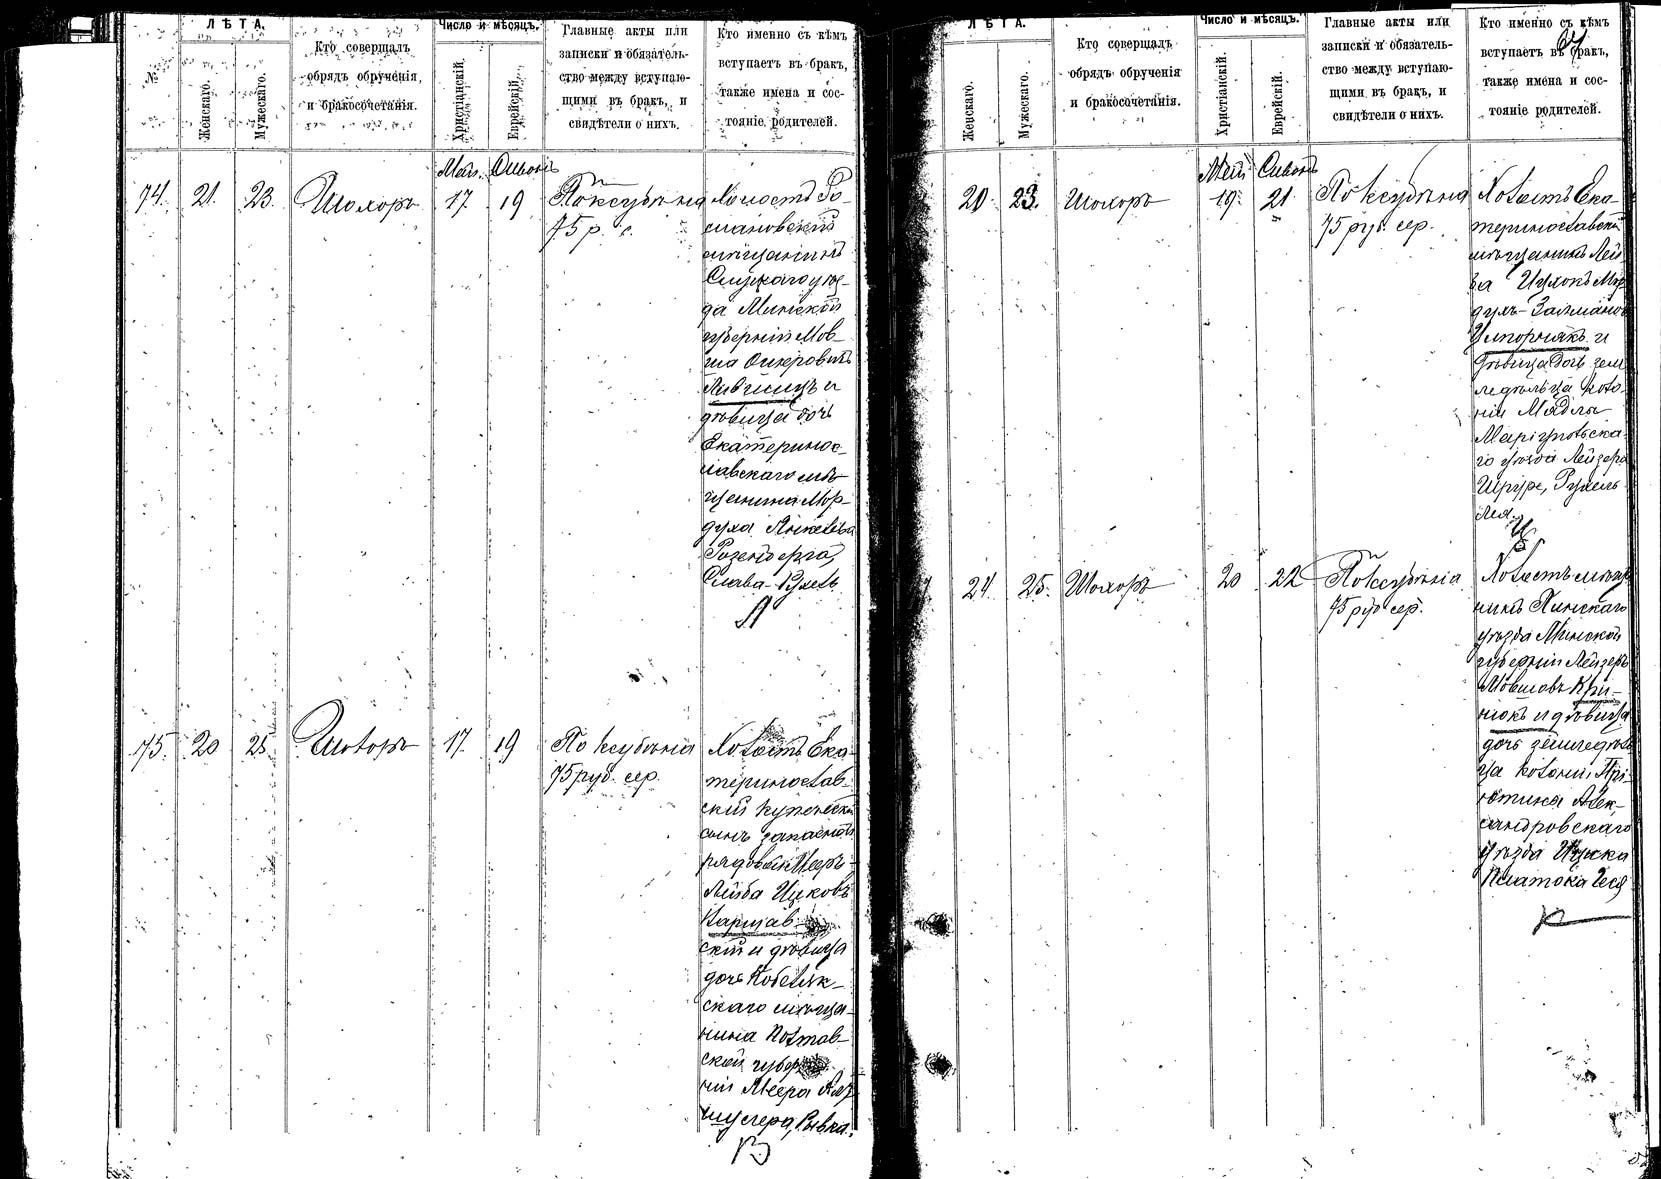 ЛѢТА.
Число и мѣсяцъ.
№
Женскаго.
Мужескаго.
Кто совершалъ
обрядъ обрученія
и бракосочетанія.
Христіанскій.
Еврейскій.
Главные акты или
записки и обязатель-
ство между вступаю-
щими въ бракъ, и
свидѣтели о нихъ.
Кто именно съ кѣмъ
вступаетъ въ бракъ,
также имена и сос-
тояніе родителей.
Май. Сивонъ
74. 21. 23. Шохоръ 17. 19
По ксубѣна
75 р. с.
Холостъ Ро-
мановскій
мѣщанинъ
Слуцкаго уѣз-
да Минской
губерніи Мов-
ша Ошеровичъ
и
дѣвица дочь
Екатеринос-
лавскаго мѣ-
щанина Мор-
духа Янкелева
Розенберга,
Слава-Рухель
75. 20 25 Шохоръ 17. 19
По ксубѣна
75 руб. сер.
Холостъ Ека-
теринослав-
скій купеческій
сынъ запасной
рядовой Меръ-
Лейба Ицковъ
Варшав-
скій и дѣвица
дочь Кобеляк-
скаго мѣща-
нина Полтав-
ской губер-
ніи Меера Аль-
шулера, Рывка.
ЛѢТА.
Число и мѣсяцъ.
Женскаго.
Мужескаго.
Кто совершалъ
обрядъ обрученія
и бракосочетанія.
Христіанскій.
Еврейскій.
Главные акты или
записки и обязатель-
ство между вступаю-
щими въ бракъ, и
свидѣтели о нихъ.
Кто именно съ кѣмъ
вступаетъ въ бракъ,
также имена и сос-
тояніе родителей.
Май Сивонъ
20 23. Шохоръ 19. 21
По ксубѣна
75 руб. сер.
Холостъ Ека-
теринославскій
мѣщанинъ Лей-
ба Ицхокъ Мор-
духъ-Залманов
и
дѣвица дочь зем-
ледѣльца коло-
ніи
Маріупольска-
го уѣзда Лейзера
Шпуре, Рухель
Лея.
24. 25. Шохоръ 20 22
По ксубѣна
75 руб сер.
Холостъ мѣща-
нинъ Пинскаго
уѣзда Минской
губерніи Лейзеръ
Мовшовъ Кри-
нюкъ и дѣвица
дочь земледѣль-
ца колоніи Прі-
ютина Алек-
сандровскаго
уѣзда Ицка
Платока Геся